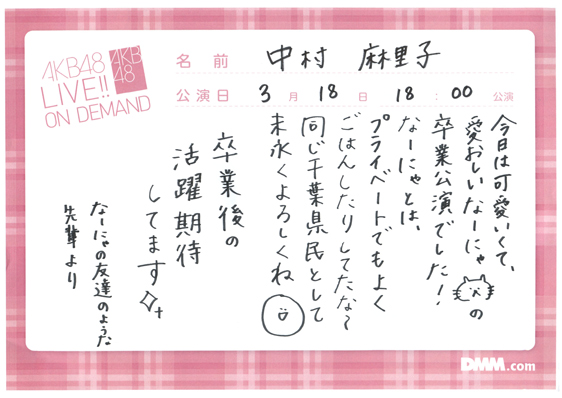 AKB48
LIVE!!
ON DEMAND
AKB
48
名前 中村 麻里子
公演日 3月18日 18:00 公演
今日は可愛いくて、
愛おしいなーにゃの
卒業公演でした!
なーにゃとは、
プライベートでもよく
ごはんしたりしてたな〜
同じ千葉県民として
末永くよろしくね
卒業後の
活躍期待
してます
なーにゃの友達のような
先輩より
DMM.com